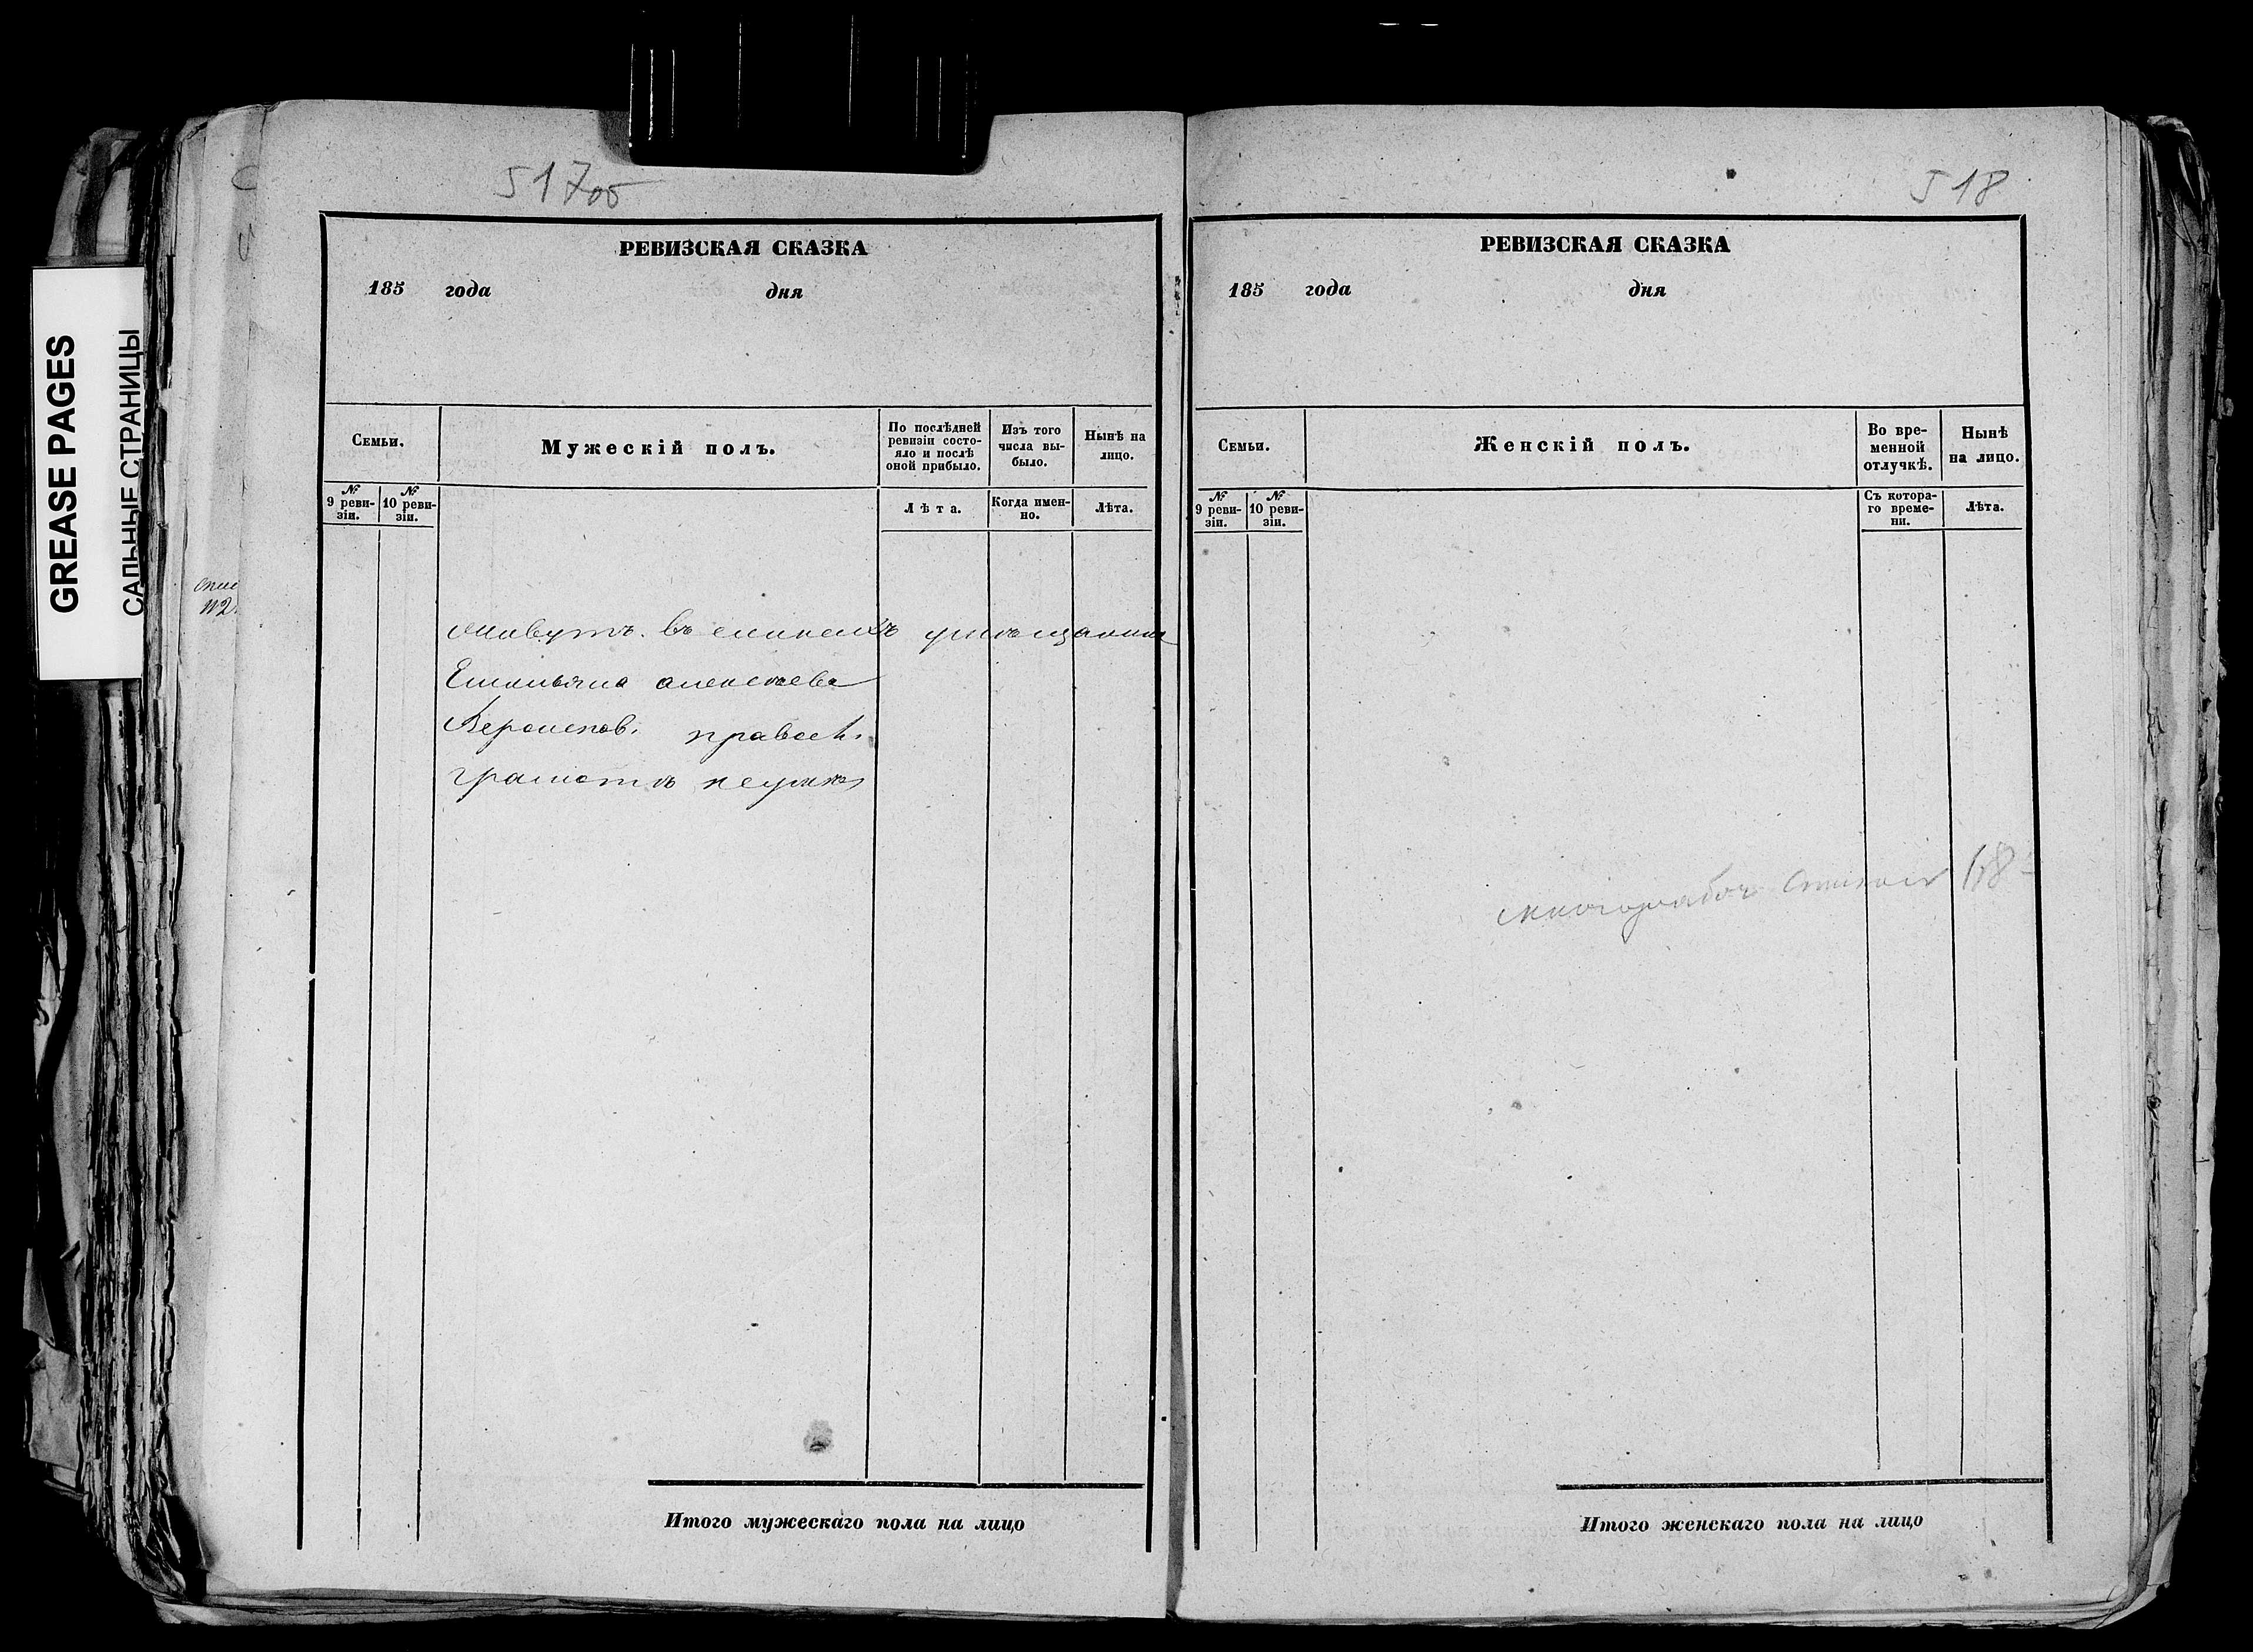 GREASE PAGES
САЛЬНЫЕ СТРАНИЦЫ
517об
РЕВИЗСКАЯ СКАЗКА
185 года дня
Семьи.
Мужескій полъ.
По послѣдней ревизіи состо-
яло и послѣ
оной прибыло.
Изъ того
числа вы-
было.
Нынѣ на
лицо.
№ 9 реви-
зіи.
№ 10 реви-
зіи.
Лѣта.
Когда имен-
но.
Лѣта.
живутъ. въ
Емельяна алексеева
правосл.
грамотѣ
Итого мужескаго пола на лицо
518
РЕВИЗСКАЯ СКАЗКА
185 года дня
Семьи.
Женскій полъ.
Во вре-
менной
отлучкѣ.
Нынѣ
на лицо.
№ 9 реви-
зіи.
№ 10 реви-
зіи.
Съ котора-
го време-
ни.
Лѣта.
Итого женскаго пола на лицо